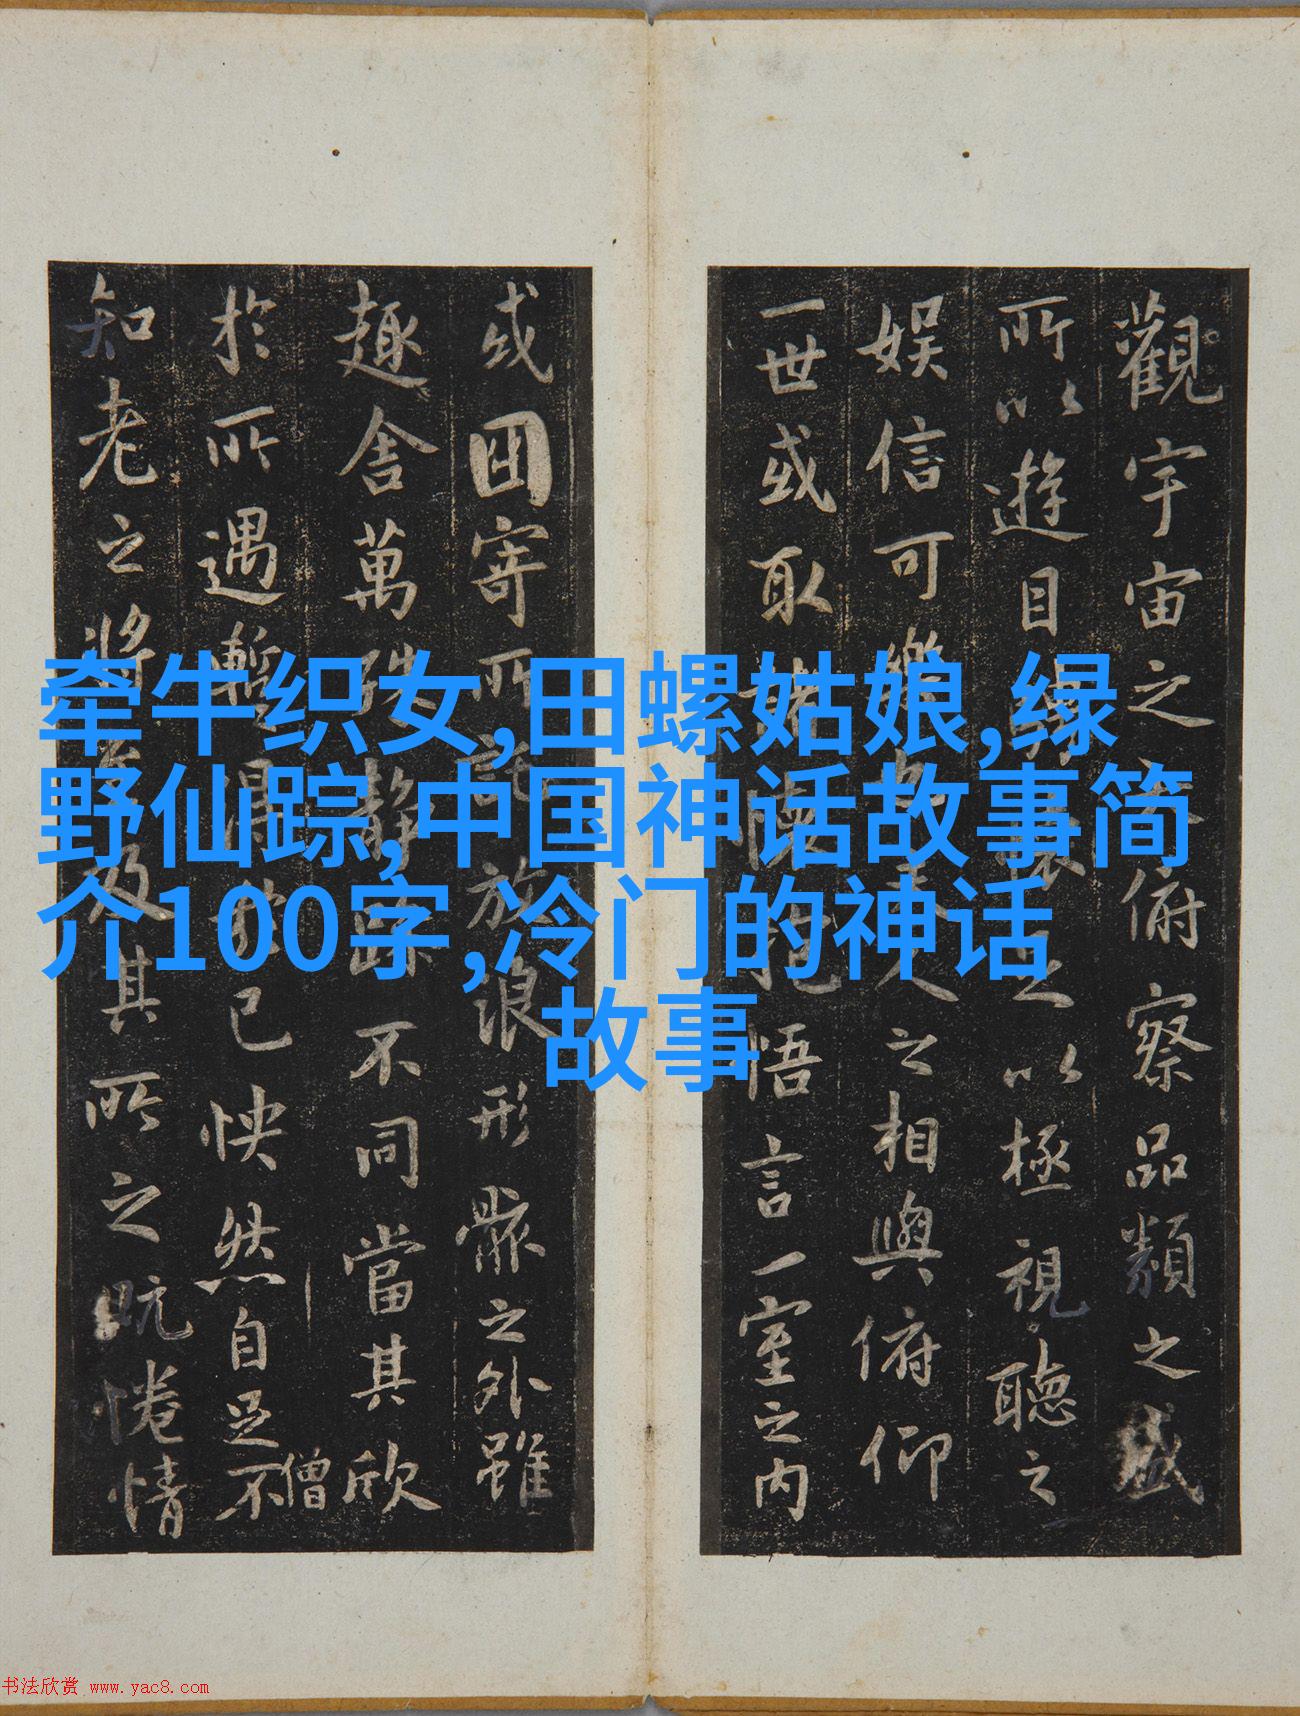 牵牛织女,田螺姑娘,绿
野仙踪,中国神话故事简
介100字,冷门的神话
故事
觀宇宙之大俯察品類之盛
所以遊目騁懷足以極視聽之
娛信可樂也夫人之相與俯仰
一世或取諸懷抱悟言一室之内
或因寄所託放浪形骸之外雖
趣舍萬殊静躁不同當其欣
於所遇暫得於己快然自足不
僧
知老之將至及其所之既惓情
书法欣赏 www.yac8.com